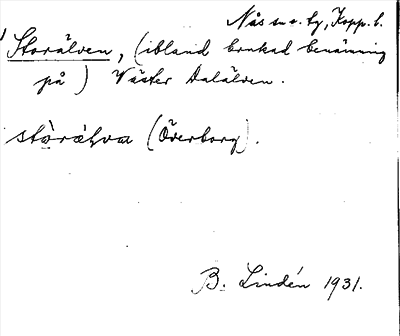 Nås sn o. by, Kopp. l.
Storälven, (ibland brukad benämning
på) Väster Dalälven.
stòràl̨va (Överborg).
B. Lindén 1931.